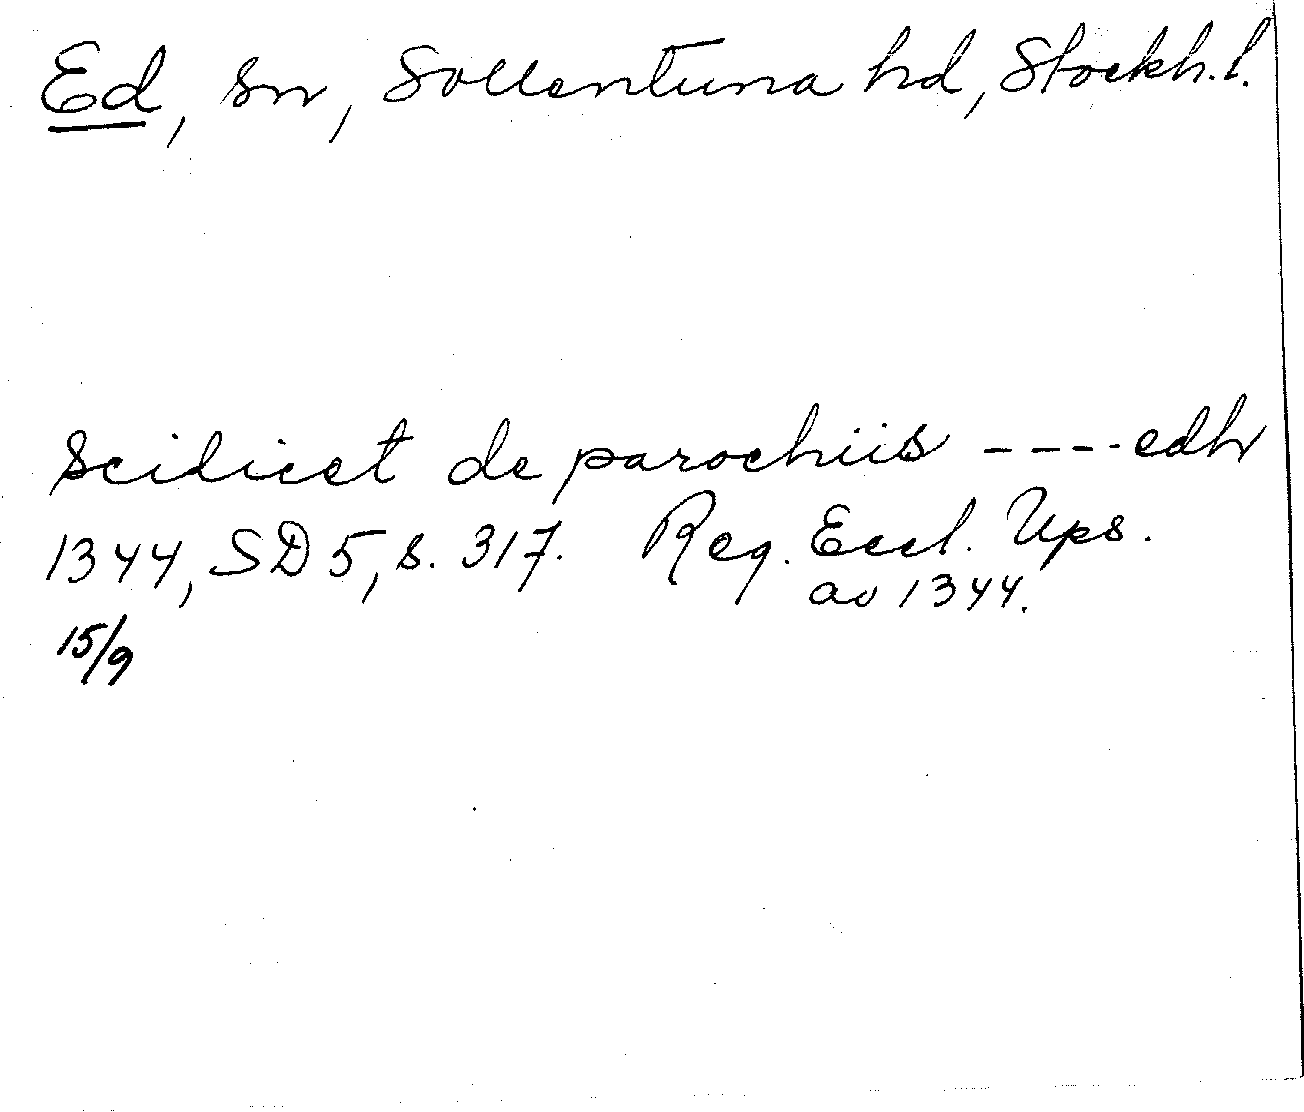 Ed, sn, Sollentuna hd, Stockh.l.
Scilicet de parochiis ---- edh
1344, SD 5, s. 317. Reg. Eccl. Ups.
av 1344.
15/9